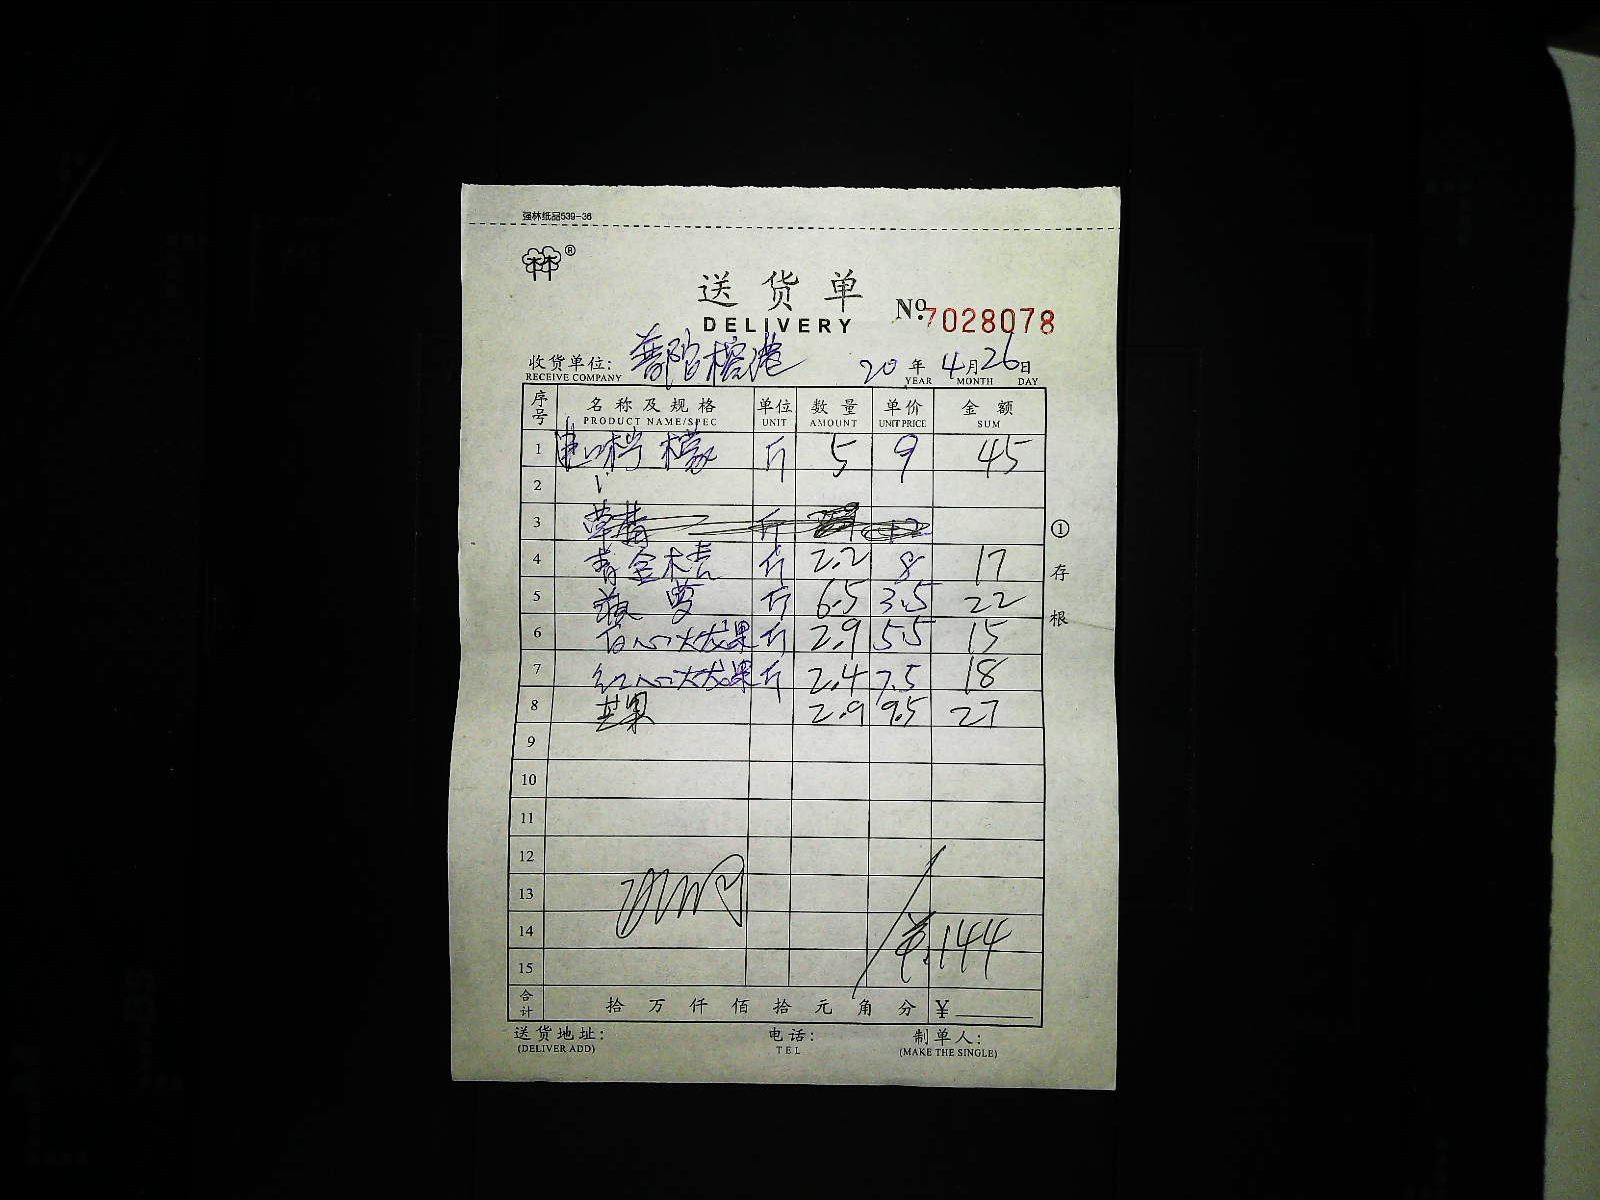 强林纸品539-36
®
送货单
DELIVERY
No. 7028078
收货单位: 普陀榕港 20 年 4 月 26 日
RECEIVE COMPANY YEAR MONTH DAY
序号 名称及规格 单位 数量 单价 金额
PRODUCT NAME/SPEC UNIT AMOUNT UNIT PRICE SUM
1 柠檬 斤 5 9 45
2
3 草莓 斤 12
4 青金桔 斤 2.2 8 17
5 菠萝 斤 6.5 3.5 22
6 白心火龙果 斤 2.9 5.5 15
7 红心火龙果 斤 2.4 7.5 18
8 芒果 2.9 9.5 27
9
10
11
12
13
14 144
15
合计 拾 万 仟 佰 拾 元 角 分 ¥
送货地址: 电话: 制单人:
(DELIVER ADD) TEL (MAKE THE SINGLE)
①存根